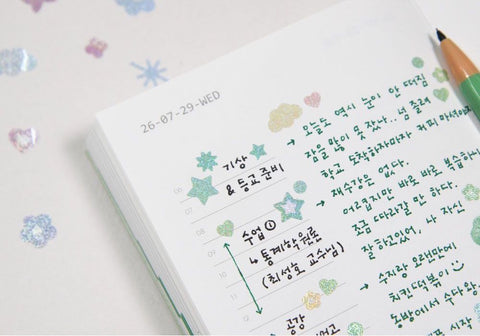 26-07-29-WED
기상
& 등교준비
수업 ①
↳ 통계학원론
(최성호 교수님)
공강
→ 오늘도 역시 눈이 안 떠짐
잠을 많이 못 잤나.. 넘 졸려
학교 도착하자마자 커피 마셔야지
→ 재수강은 없다.
어렵지만 바로 바로 복습하니
조금 따라갈 만 하다.
잘하고있어, 나 자신
→ 수지랑 오랜만에
치킨떡볶이
오방에서 수다와
06
07
08
09
10
11
12